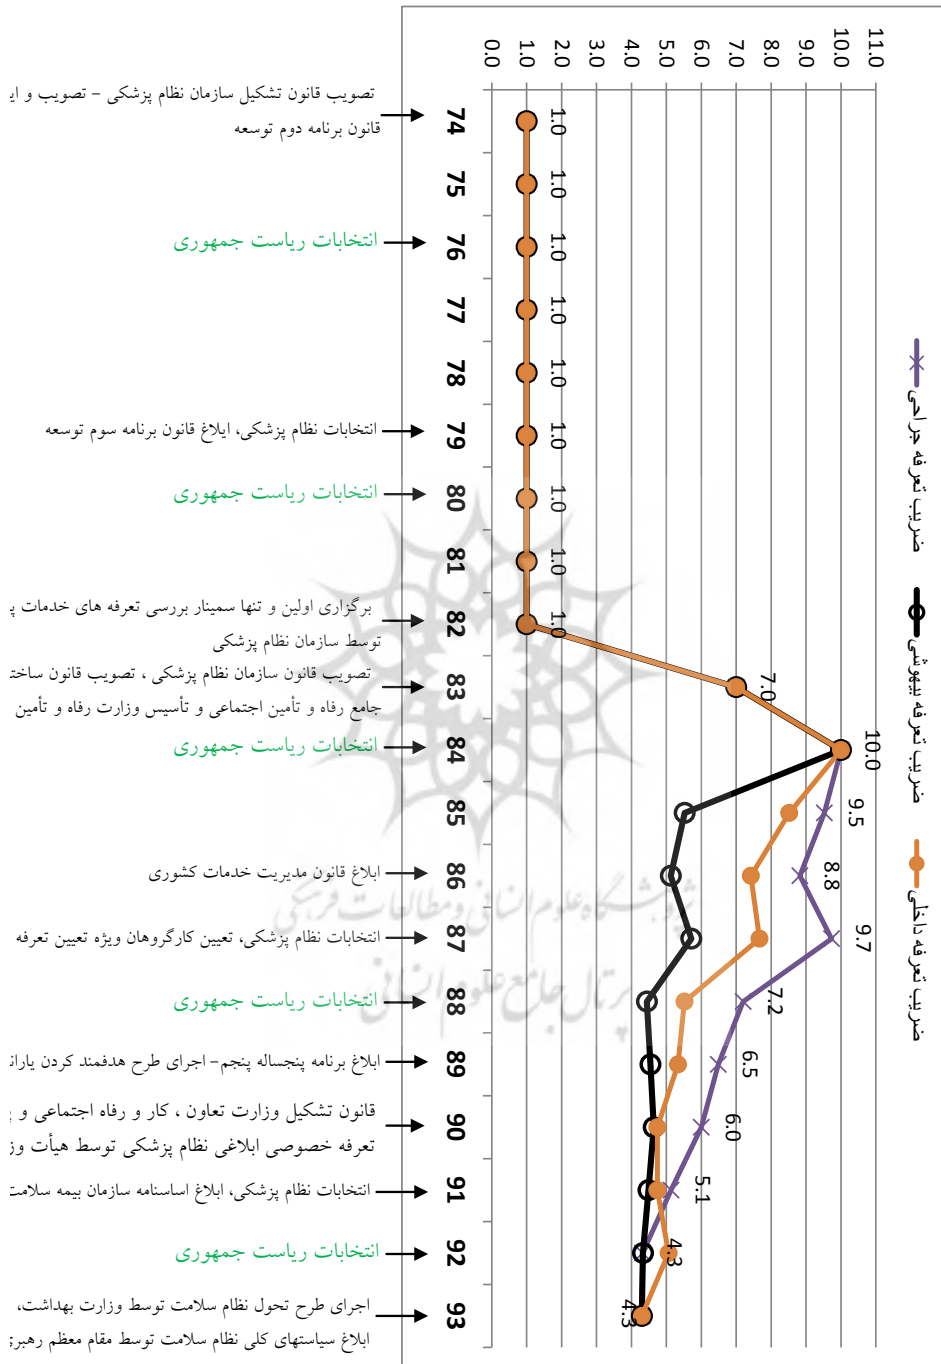 11.0
10.0
9.0
8.0
7.0
6.0
5.0
4.0
3.0
2.0
1.0
0.0
ضریب تعرفه جراحی
ضریب تعرفه بیهوشی
ضریب تعرفه داخلی
74
75
76
77
78
79
80
81
82
83
84
85
86
87
88
89
90
91
92
93
1.0
1.0
1.0
1.0
1.0
1.0
1.0
1.0
1.0
7.0
10.0
9.5
8.8
9.7
7.2
6.5
6.0
5.1
4.3
4.3
تصویب قانون تشکیل سازمان نظام پزشکی – تصویب و
قانون برنامه دوم توسعه
انتخابات ریاست جمهوری
انتخابات نظام پزشکی، ابلاغ قانون برنامه سوم توسعه
انتخابات ریاست جمهوری
برگزاری اولین و تنها سمینار بررسی تعرفه های خدمات
توسط سازمان نظام پزشکی
تصویب قانون سازمان نظام پزشکی ، تصویب قانون
جامع رفاه و تأمین اجتماعی و تأسیس وزارت رفاه و تأمین
انتخابات ریاست جمهوری
ابلاغ قانون مدیریت خدمات کشوری
انتخابات نظام پزشکی، تعیین کارگروهان ویژه تعیین تعرفه
انتخابات ریاست جمهوری
ابلاغ برنامه پنجساله پنجم– اجرای طرح هدفمند کردن
قانون تشکیل وزارت تعاون ، کار و رفاه اجتماعی و
تعرفه خصوصی ابلاغی نظام پزشکی توسط هیأت
انتخابات نظام پزشکی، ابلاغ اساسنامه سازمان بیمه سلامت
انتخابات ریاست جمهوری
اجرای طرح تحول نظام سلامت توسط وزارت بهداشت،
ابلاغ سیاستهای کلی نظام سلامت توسط مقام معظم
پژوهشگاه علوم انسانی و مطالعات فرهنگی
پرتال جامع علوم انسانی